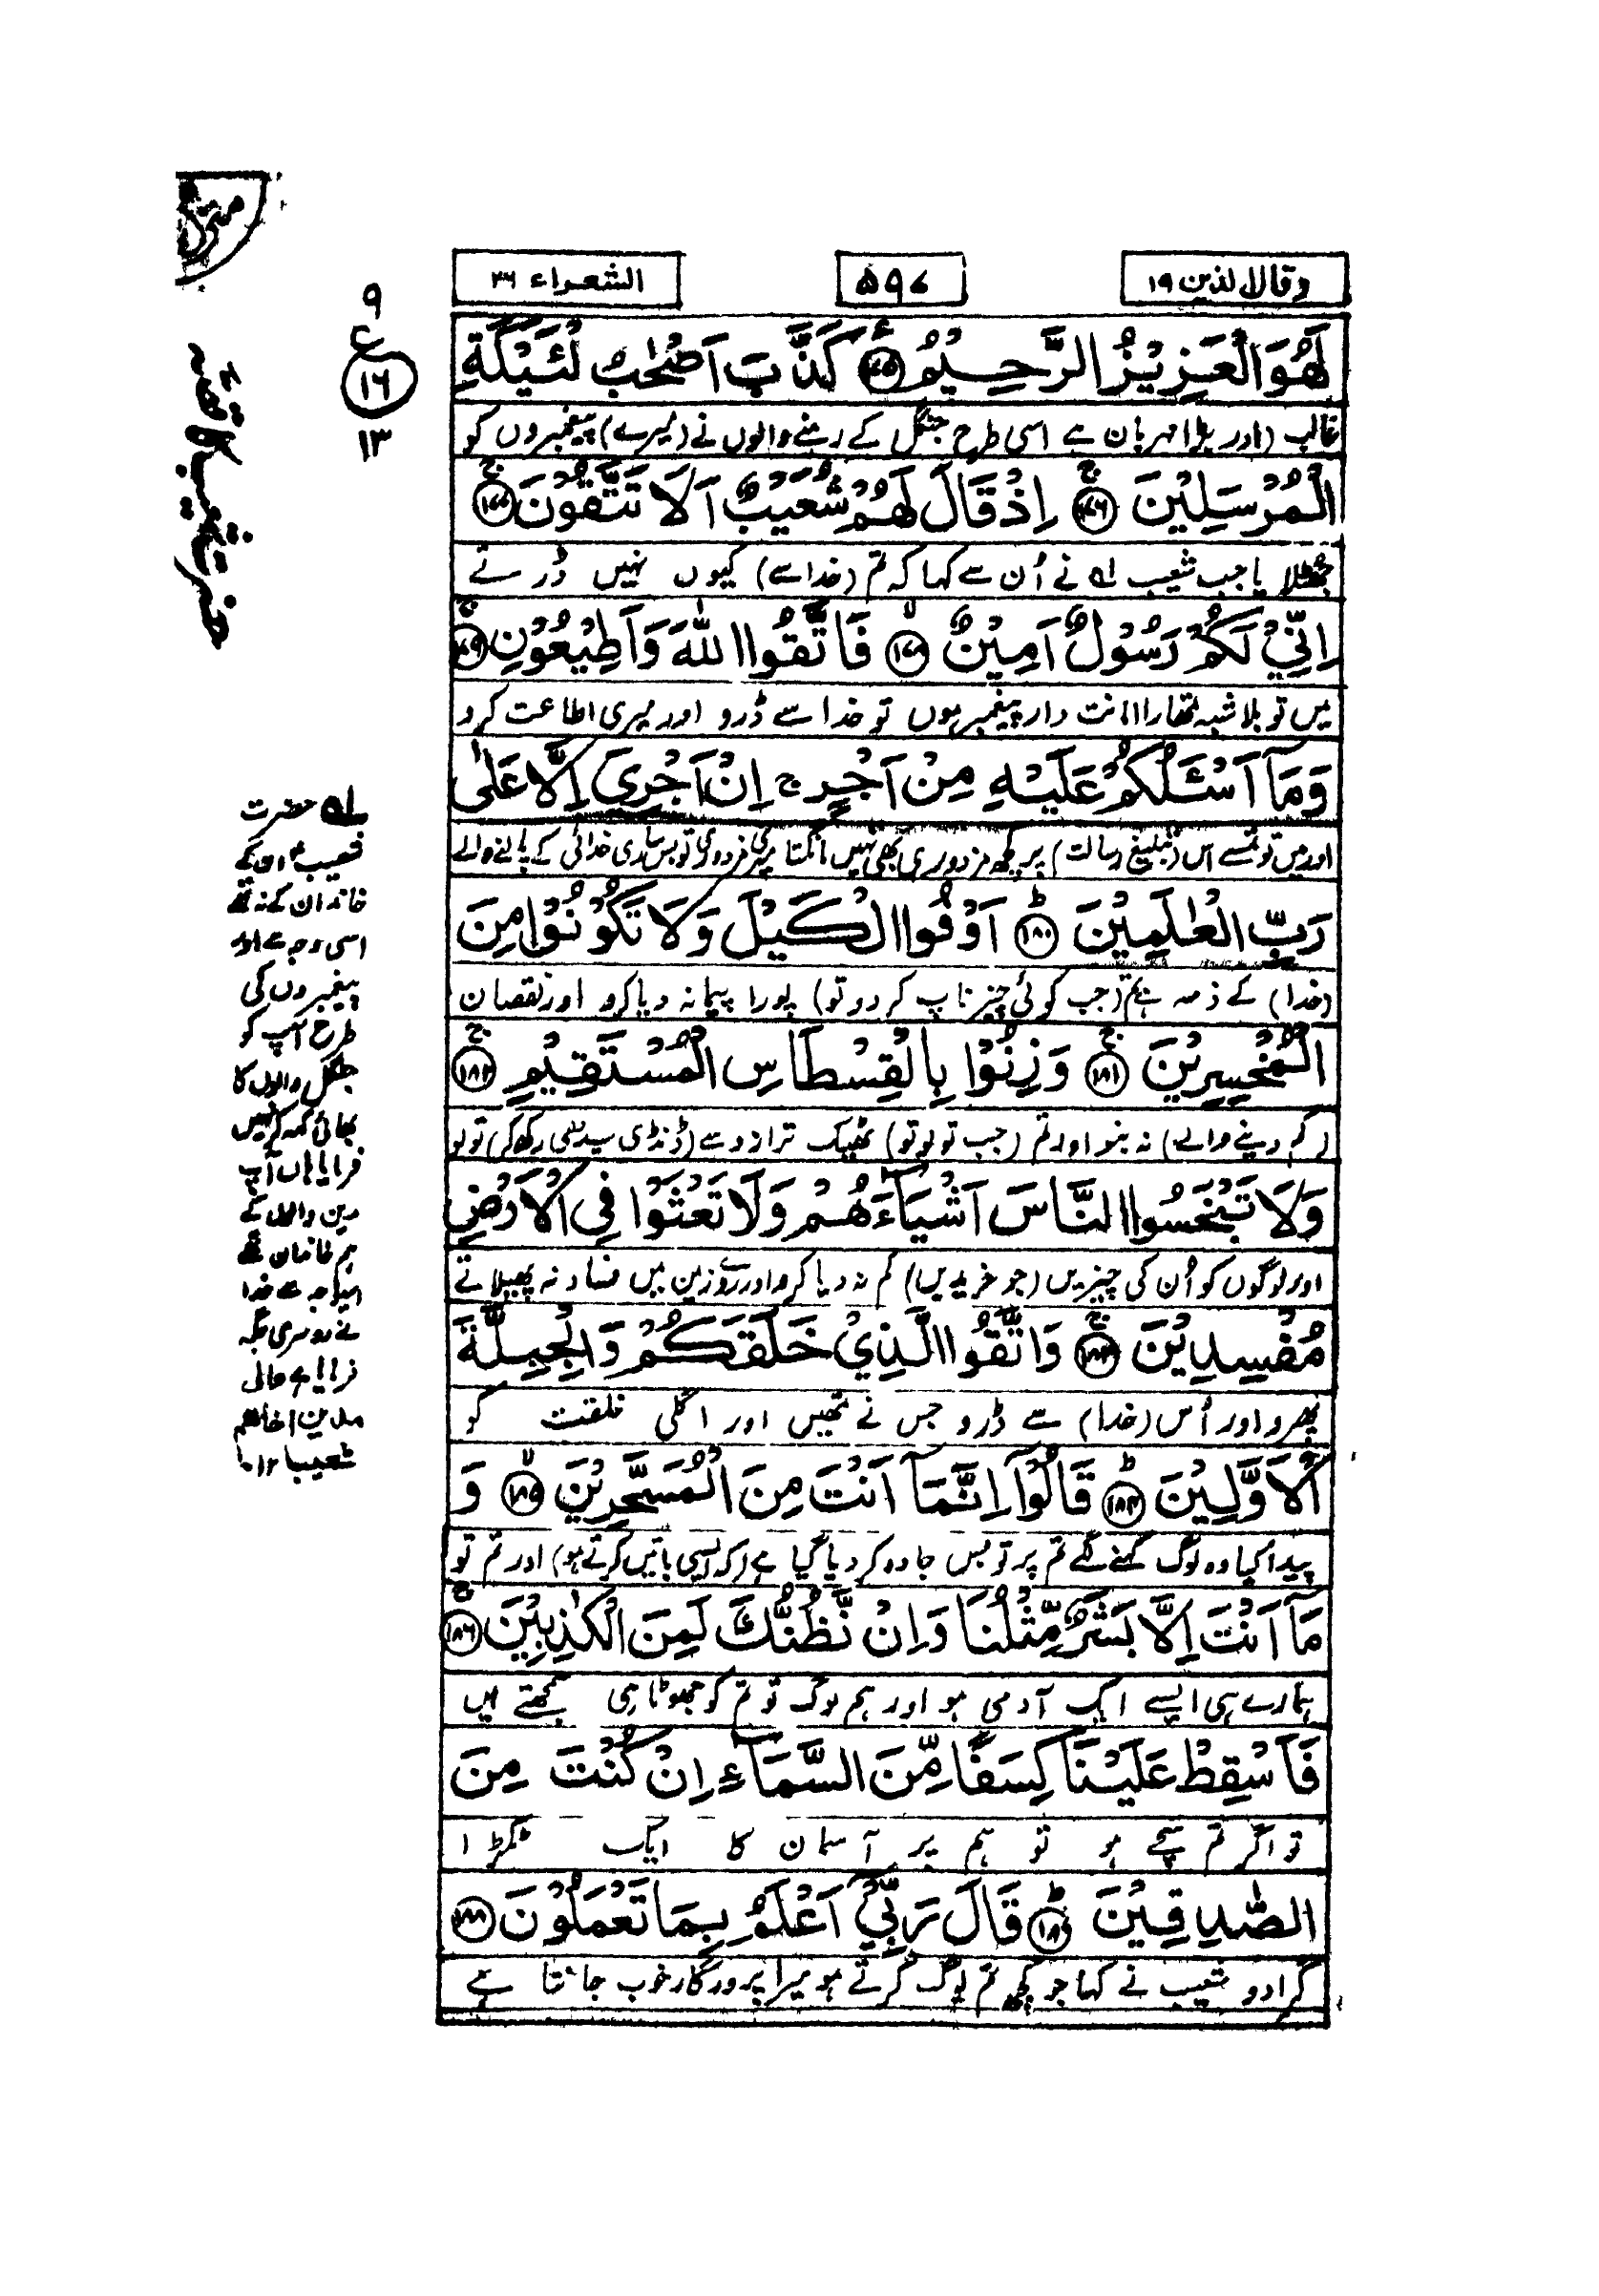 وقال الذین ۱۹
۵۹۷
الشعراء ۲۶
لَهُوَ الْعَزِيْزُ الرَّحِيْمُ ۝۱۷۵ كَذَّبَ اَصْحٰبُ لْـَٔيْكَةِ
غالب (اور بڑا) مہربان ہے اسی طرح جنگل کے رہنے والوں نے (میرے) پیغمبروں کو
الْمُرْسَلِيْنَ ۝۱۷۶ اِذْ قَالَ لَهُمْ شُعَيْبٌ اَلَا تَتَّقُوْنَ ۝۱۷۷
جھٹلایا جب شعیب لہ نے اُن سے کہا کہ تم (خدا سے) کیوں نہیں ڈرتے
اِنِّيْ لَكُمْ رَسُوْلٌ اَمِيْنٌ ۝۱۷۸ فَاتَّقُوا اللّٰهَ وَاَطِيْعُوْنِ ۝۱۷۹
میں تو بلا شبہ تمھارا امانت دار پیغمبر ہوں تو خدا سے ڈرو اور میری اطاعت کرو
وَمَآ اَسْـَٔلُكُمْ عَلَيْهِ مِنْ اَجْرٍ ج اِنْ اَجْرِيَ اِلَّا عَلٰى
اور میں تو تم سے اس (تبلیغ رسالت) پر کچھ مزدوری بھی نہیں مانگتا میری مزدوری تو بس ساری خدائی کے پالنے والے
رَبِّ الْعٰلَمِيْنَ ۝۱۸۰ اَوْفُوا الْكَيْلَ وَلَا تَكُوْنُوْا مِنَ
(خدا) کے ذمہ ہے تم (جب کوئی چیز ناپ کر دو تو) پورا پیمانہ دیا کرو اور نقصان
الْمُخْسِرِيْنَ ۝۱۸۱ وَزِنُوْا بِالْقِسْطَاسِ الْمُسْتَقِيْمِ ۝۱۸۲
(کم دینے والے) نہ بنو اور تم (جب تولو تو) ٹھیک ترازو سے (ڈنڈی سیدھی رکھ کر) تولو
وَلَا تَبْخَسُوا النَّاسَ اَشْيَآءَهُمْ وَلَا تَعْثَوْا فِى الْاَرْضِ
اور لوگوں کو اُن کی چیزیں (جو خریدیں) کم نہ دیا کرو اور روئے زمین میں فساد نہ پھیلاتے
مُفْسِدِيْنَ ۝۱۸۳ وَاتَّقُوا الَّذِيْ خَلَقَكُمْ وَالْجِبِلَّةَ
پھرو اور اُس (خدا) سے ڈرو جس نے تمھیں اور اگلی خلقت کو
الْاَوَّلِيْنَ ۝۱۸۴ قَالُوْٓا اِنَّمَآ اَنْتَ مِنَ الْمُسَحَّرِيْنَ ۝۱۸۵ وَ
پیدا کیا وہ لوگ کہنے لگے تم پر تو بس جادو کر دیا گیا ہے (کہ ایسی باتیں کرتے ہو) اور تم تو
مَآ اَنْتَ اِلَّا بَشَرٌ مِّثْلُنَا وَاِنْ نَّظُنُّكَ لَمِنَ الْكٰذِبِيْنَ ۝۱۸۶
ہمارے ہی ایسے ایک آدمی ہو اور ہم لوگ تو تم کو جھوٹا ہی سمجھتے ہیں
فَاَسْقِطْ عَلَيْنَا كِسَفًا مِّنَ السَّمَآءِ اِنْ كُنْتَ مِنَ
تو اگر تم سچے ہو تو ہم پر آسمان کا ایک ٹکڑا
الصّٰدِقِيْنَ ۝۱۸۷ قَالَ رَبِّيْٓ اَعْلَمُ بِمَا تَعْمَلُوْنَ ۝۱۸۸
گرا دو شعیب نے کہا جو کچھ تم لوگ کرتے ہو میرا پروردگار خوب جانتا ہے
۹
ع
۱۶
۱۳
حضرت شعیب کا قصہ
لہ حضرت
شعیب ان کے
خاندان کے نہ تھے
اسی وجہ سے اور
پیغمبروں کی
طرح آپ کو
جنگل والوں کا
بھائی کہہ کر نہیں
فرمایا ہاں آپ
مدین والوں کے
ہم خاندان تھے
اسی وجہ سے خدا
نے دوسری جگہ
فرمایا ہے والی
مدین اخاهم
شعیبا ۱۲